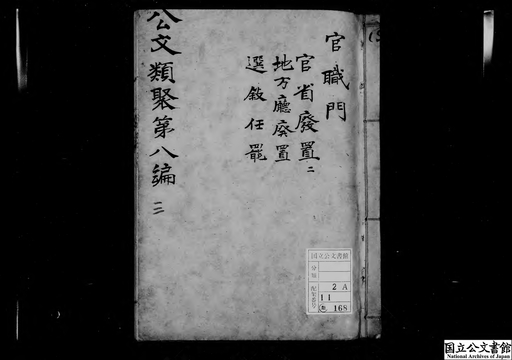 官職門
官省廢置二
地方廳廢置
選敘任罷
公文類聚第八編
三
国立公文書館
分類
配架番号
2 A
11
168
国立公文書館
National Archives of Japan